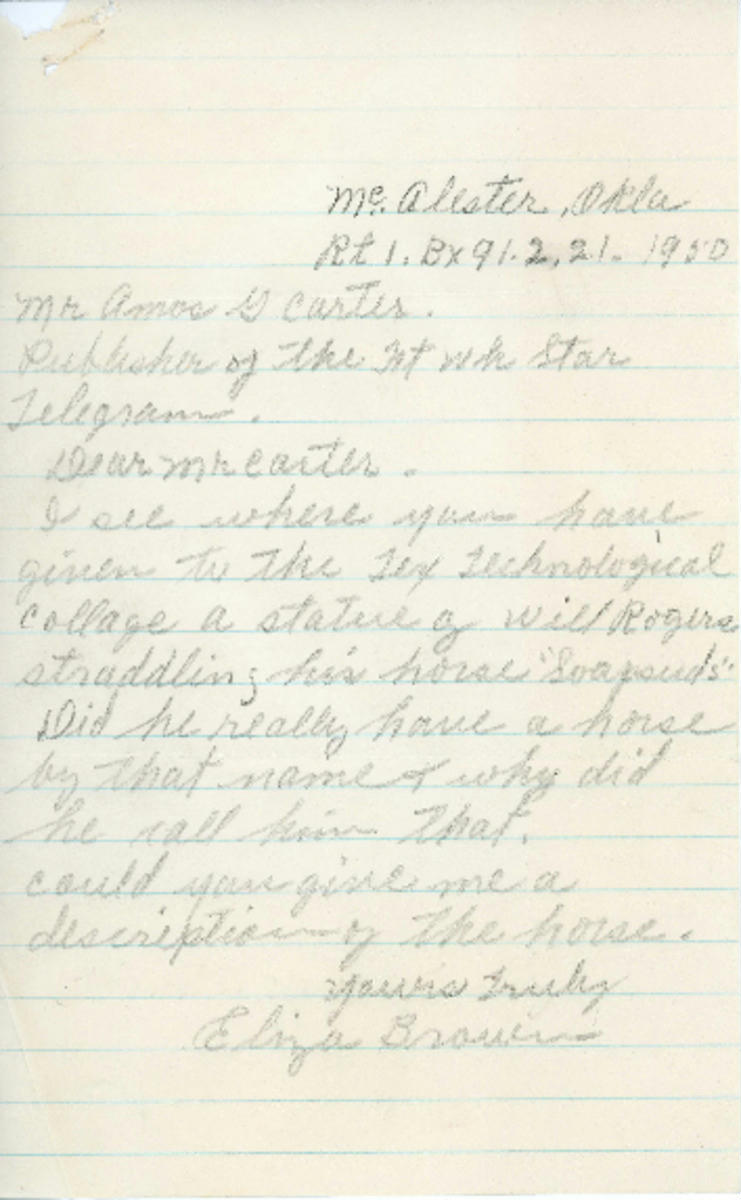 Mc. Alester, Okla
Rt 1. Bx 91. 2, 21. 1950
Mr Amos G Carter.
Publisher of the Ft Wh Star
Telegram.
Dear Mr Carter.
I see where you have
given to the Tex Technological
collage a statue of Will Rogers
straddling his horse "Soapsuds"
Did he really have a horse
by that name & why did
he call him that.
could you give me a
description of the horse.
Yours Truly
Eliza Brown